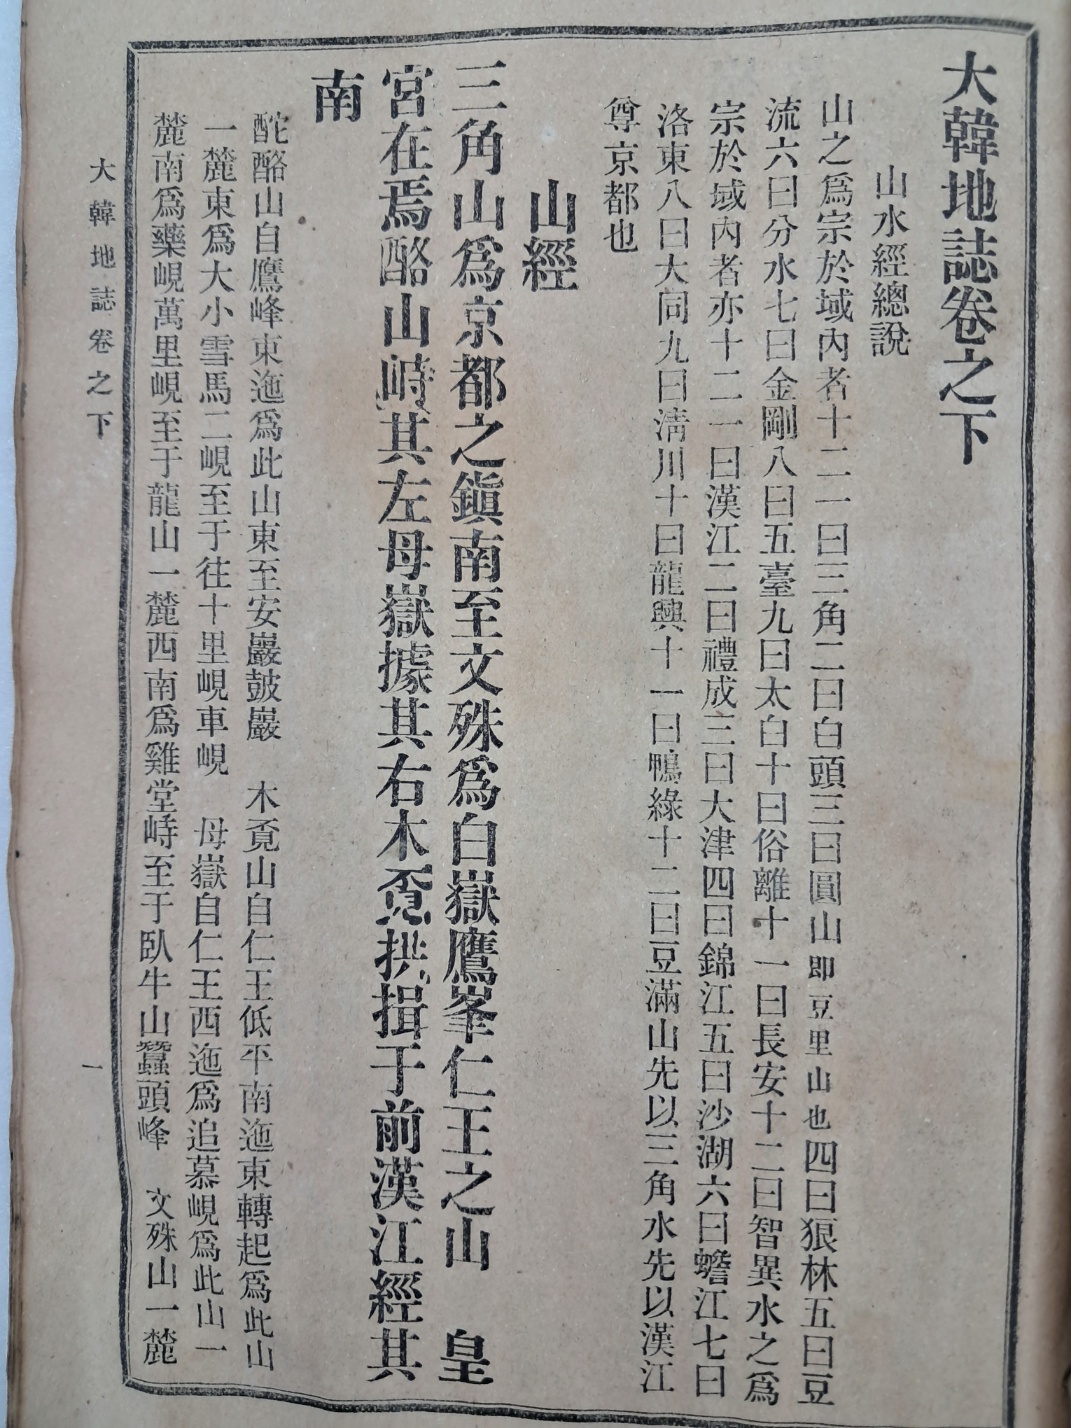 大韓地誌卷之下
山水經總說
山之爲宗於域內者十二一曰三角二曰白頭三曰圓山即豆里山也四曰狼林五曰豆
流六曰分水七曰金剛八曰五臺九曰太白十曰俗離十一曰長安十二曰智異水之爲
宗於域內者亦十二一曰漢江二曰禮成三曰大津四曰錦江五曰沙湖六曰蟾江七曰
洛東八曰大同九曰淸川十曰龍興十一曰鴨綠十二曰豆滿山先以三角水先以漢江
尊京都也
山經
三角山爲京都之鎭南至文殊爲白嶽鷹峯仁王之山 皇
宮在焉酪山峙其左母嶽據其右木覔拱揖于前漢江經其
南
酡酪山自鷹峰東迤爲此山東至安巖鼓巖 木覔山自仁王低平南迤東轉起爲此山
一麓東爲大小雪馬二峴至于往十里峴車峴 母嶽自仁王西迤爲追慕峴爲此山一
麓南爲藥峴萬里峴至于龍山一麓西南爲雞堂峙至于臥牛山蠶頭峰 文殊山一麓
大韓地誌卷之下
一